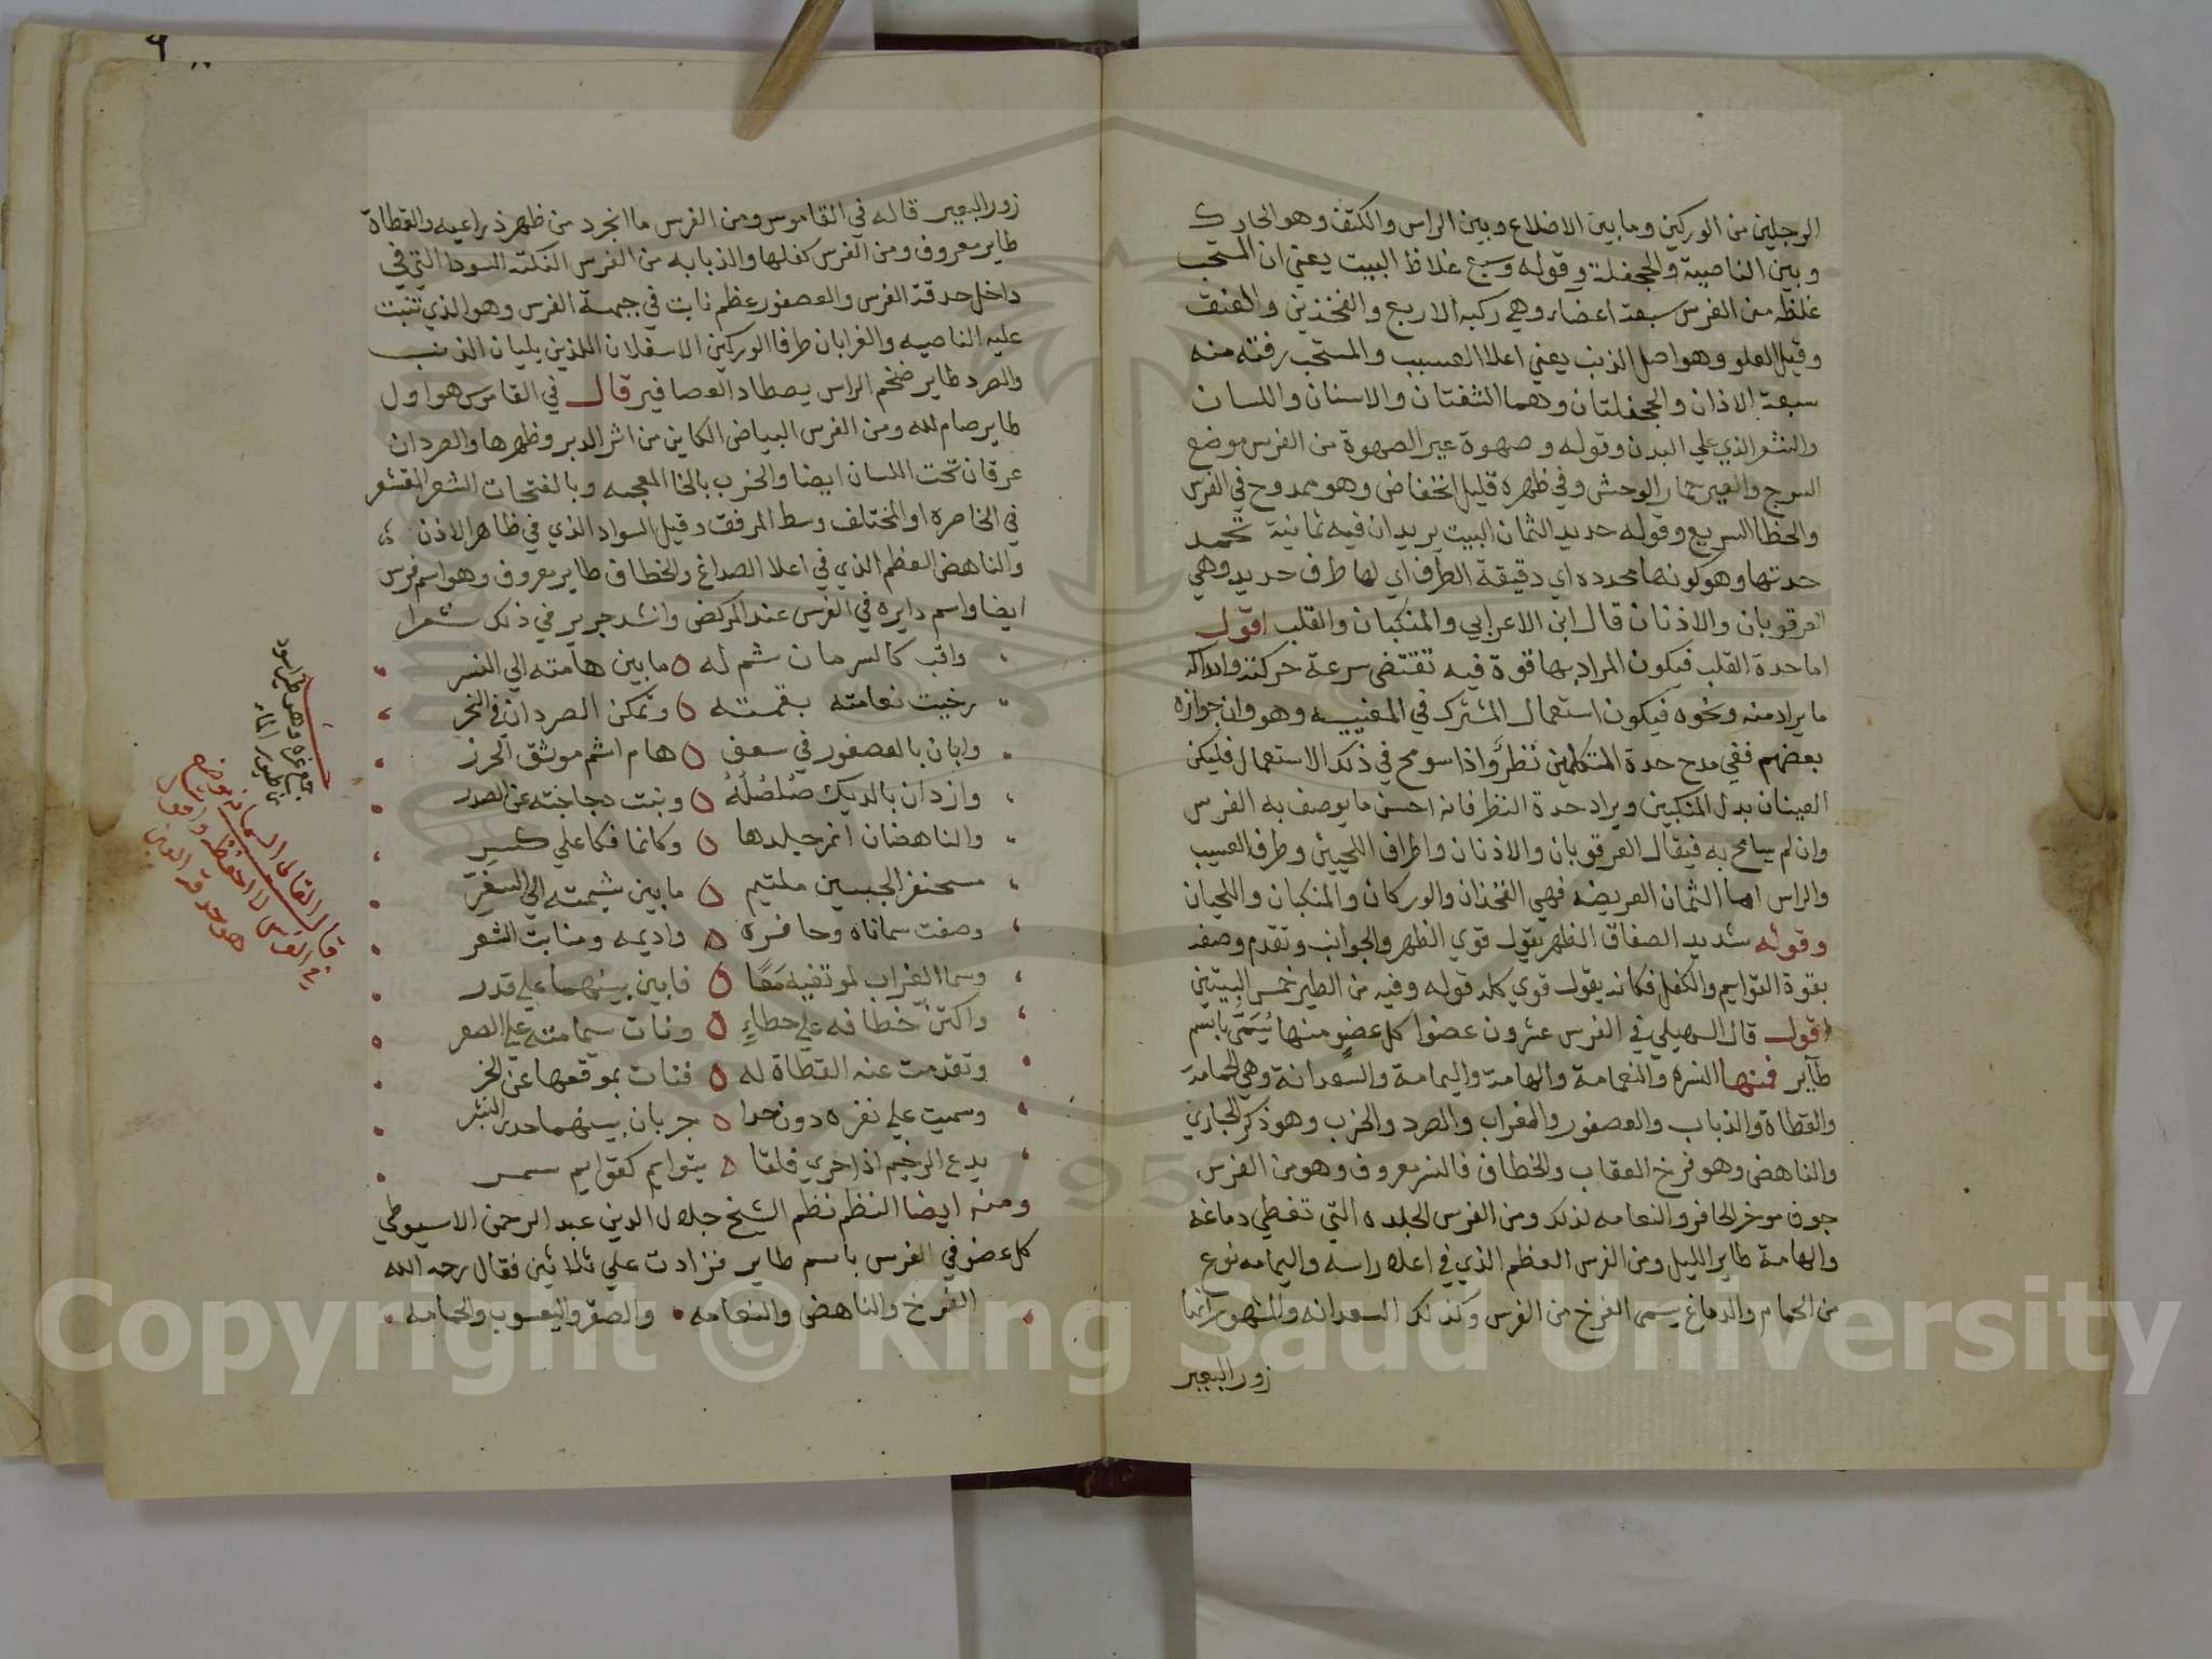 الرجلين من الوركين وما بين الاضلاع وبين الراس والكتف وهو الحارك
وبين الناصية والجحفلة وقوله وسبع غلاظ البيت يعني ان المستحب
غلظه من الفرس سبعة اعضاء وهي ركبه الاربع والفخذين والعنق
وقيل العلو وهو اصل الذنب يعني اعلا العسيب والمستحب رقته منه
سبعة الاذان والجحفلتان وهما الشفتان والاسنان واللسان
والشعر الذي علي البدن وقوله وصهوة عير الصهوة من الفرس موضع
السرج والعير حمار الوحش وفي ظهره قليل انخفاض وهو ممدوح في الفرس
والخظا السريع وقوله حديد الثمان البيت يريد ان فيه ثمانية تحمد
حدتها وهو كونها محدده اي دقيقة الطرف اي لها طرف حديد وهي
العرقوبان والاذنان قال ابن الاعرابي والمنكبان والقلب اقول
اما حدة القلب فيكون المراد بها قوة فيه تقتضي سرعة حركته وادراكه
ما يراد منه ونحوه فيكون استعمال المشترك في المعنييه وهو وان جوازه
بعضهم ففي مدح حدة المنكبين نظر واذا سومح في ذلك الاستعمال فليكن
العينان بدل المنكبين ويراد حدة النظر فانه احسن ما يوصف به الفرس
وان لم يسامح به فيقال العرقوبان والاذنان واطراف اللحيين وطرف العسيب
والراس اما الثمان العريضه فهي الفخذان والوركان والمنكبان واللحيان
وقوله شديد الصفاق الظهر يقول قوي الظهر والجوانب وتقدم وصفه
بقوة القوايم والكفل فكانه يقول قوي كله قوله وفيه من الطير خمس البيتين
اقول قال السهيلي في الفرس عشرون عضوا كل عضو منها يسمي باسم
طاير فمنها النسره والنعامة والهامة واليمامة والسعدانة وهي الحمامة
والقطاة والذباب والعصفور والغراب والصرد والخرب وهو ذكر الحباري
والناهض وهو فرخ العقاب والخطاف فالنسر معروف وهو من الفرس
جوف موخر الحافر والنعامه لذلك ومن الفرس الجلده التي تغطي دماغه
والهامة طاير الليل ومن الفرس العظم الذي في اعلا راسه واليمامه نوع
من الحمام والدماغ يسمى الفرخ من الفرس وكذلك السعدانه والمشهور انها
زور البعير
زور البعير قاله في القاموس ومن الفرس ما انجرد من ظهر ذراعيه والقطاة
طاير معروف ومن الفرس كفلها والذبابه من الفرس النكته السودا التي في
داخل حدقة الفرس والعصفور عظم نابت في جبهة الفرس وهو الذي تنبت
عليه الناصيه والغرابان طرفا الوركين الاسفلان اللذين يليان الذنب
والصرد طاير ضخم الراس يصطاد العصافير قال في القاموس هو اول
طاير صام لله ومن الفرس البياض الكاين من اثر الدبر وظهرها والصردان
عرقان تحت اللسان ايضا والخرب بالخا المعجمه وبالفتحات الشعر المقشعر
في الخاصره او المختلف وسط المرفق وقيل السواد الذي في ظاهر الاذن
والناهض العظم الذي في اعلا الصداغ والخطاف طاير معروف وهو اسم فرس
ايضا واسم دايره في الفرس عند المركض وانشد جرير في ذلك شعرا
واقب كالسرحان شم له ٥ ما بين هامته الي النسر
رخيت نعامته بقمته ٥ وتمكن الصردان في النحر
وابان بالعصفور في سعف ٥ هام اشم موثق الحرز
وازدان بالديك صلصله ٥ ونبت دجاجته عن الصدر
والناهضان امر جلدها ٥ وكانما فكا علي كسر
مسحنفر الجبسين ملتيم ٥ ما بين شيمته الي السفر
وصفت سماناه وحافره ٥ واديمه ومنابت الشعر
وسما الغراب لموتفيه معا ٥ فابين بينهما علي قدر
واكتن خطافه علي حطاء ٥ ونات سمامته علي الصعر
وتقدمت عنه القطاة له ٥ فنات بموقعها عن الخر
وسميت علي نفره دون حدا ٥ جربان بينهما حدين النشر
يدع الرجيم اذا جري فلقا ٥ بتوايم كقوايم سمر
ومنه ايضا النظم نظم الشيخ جلال الدين عبد الرحمن الاسيوطي
كل عضو في الفرس باسم طاير فزادت علي ثلاثين فقال رحمه الله
الفرخ والناهض والنعامه والصقر واليعسوب والحمامه
وهو طير اسود
من طيور الماء
Copyright © King Saud University
1957